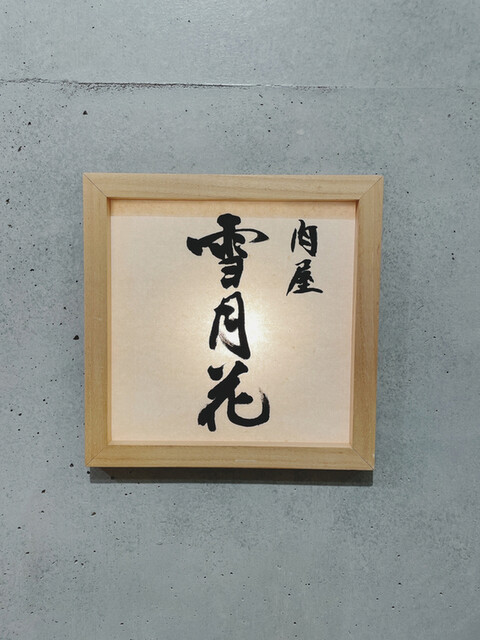 肉屋
雪月花